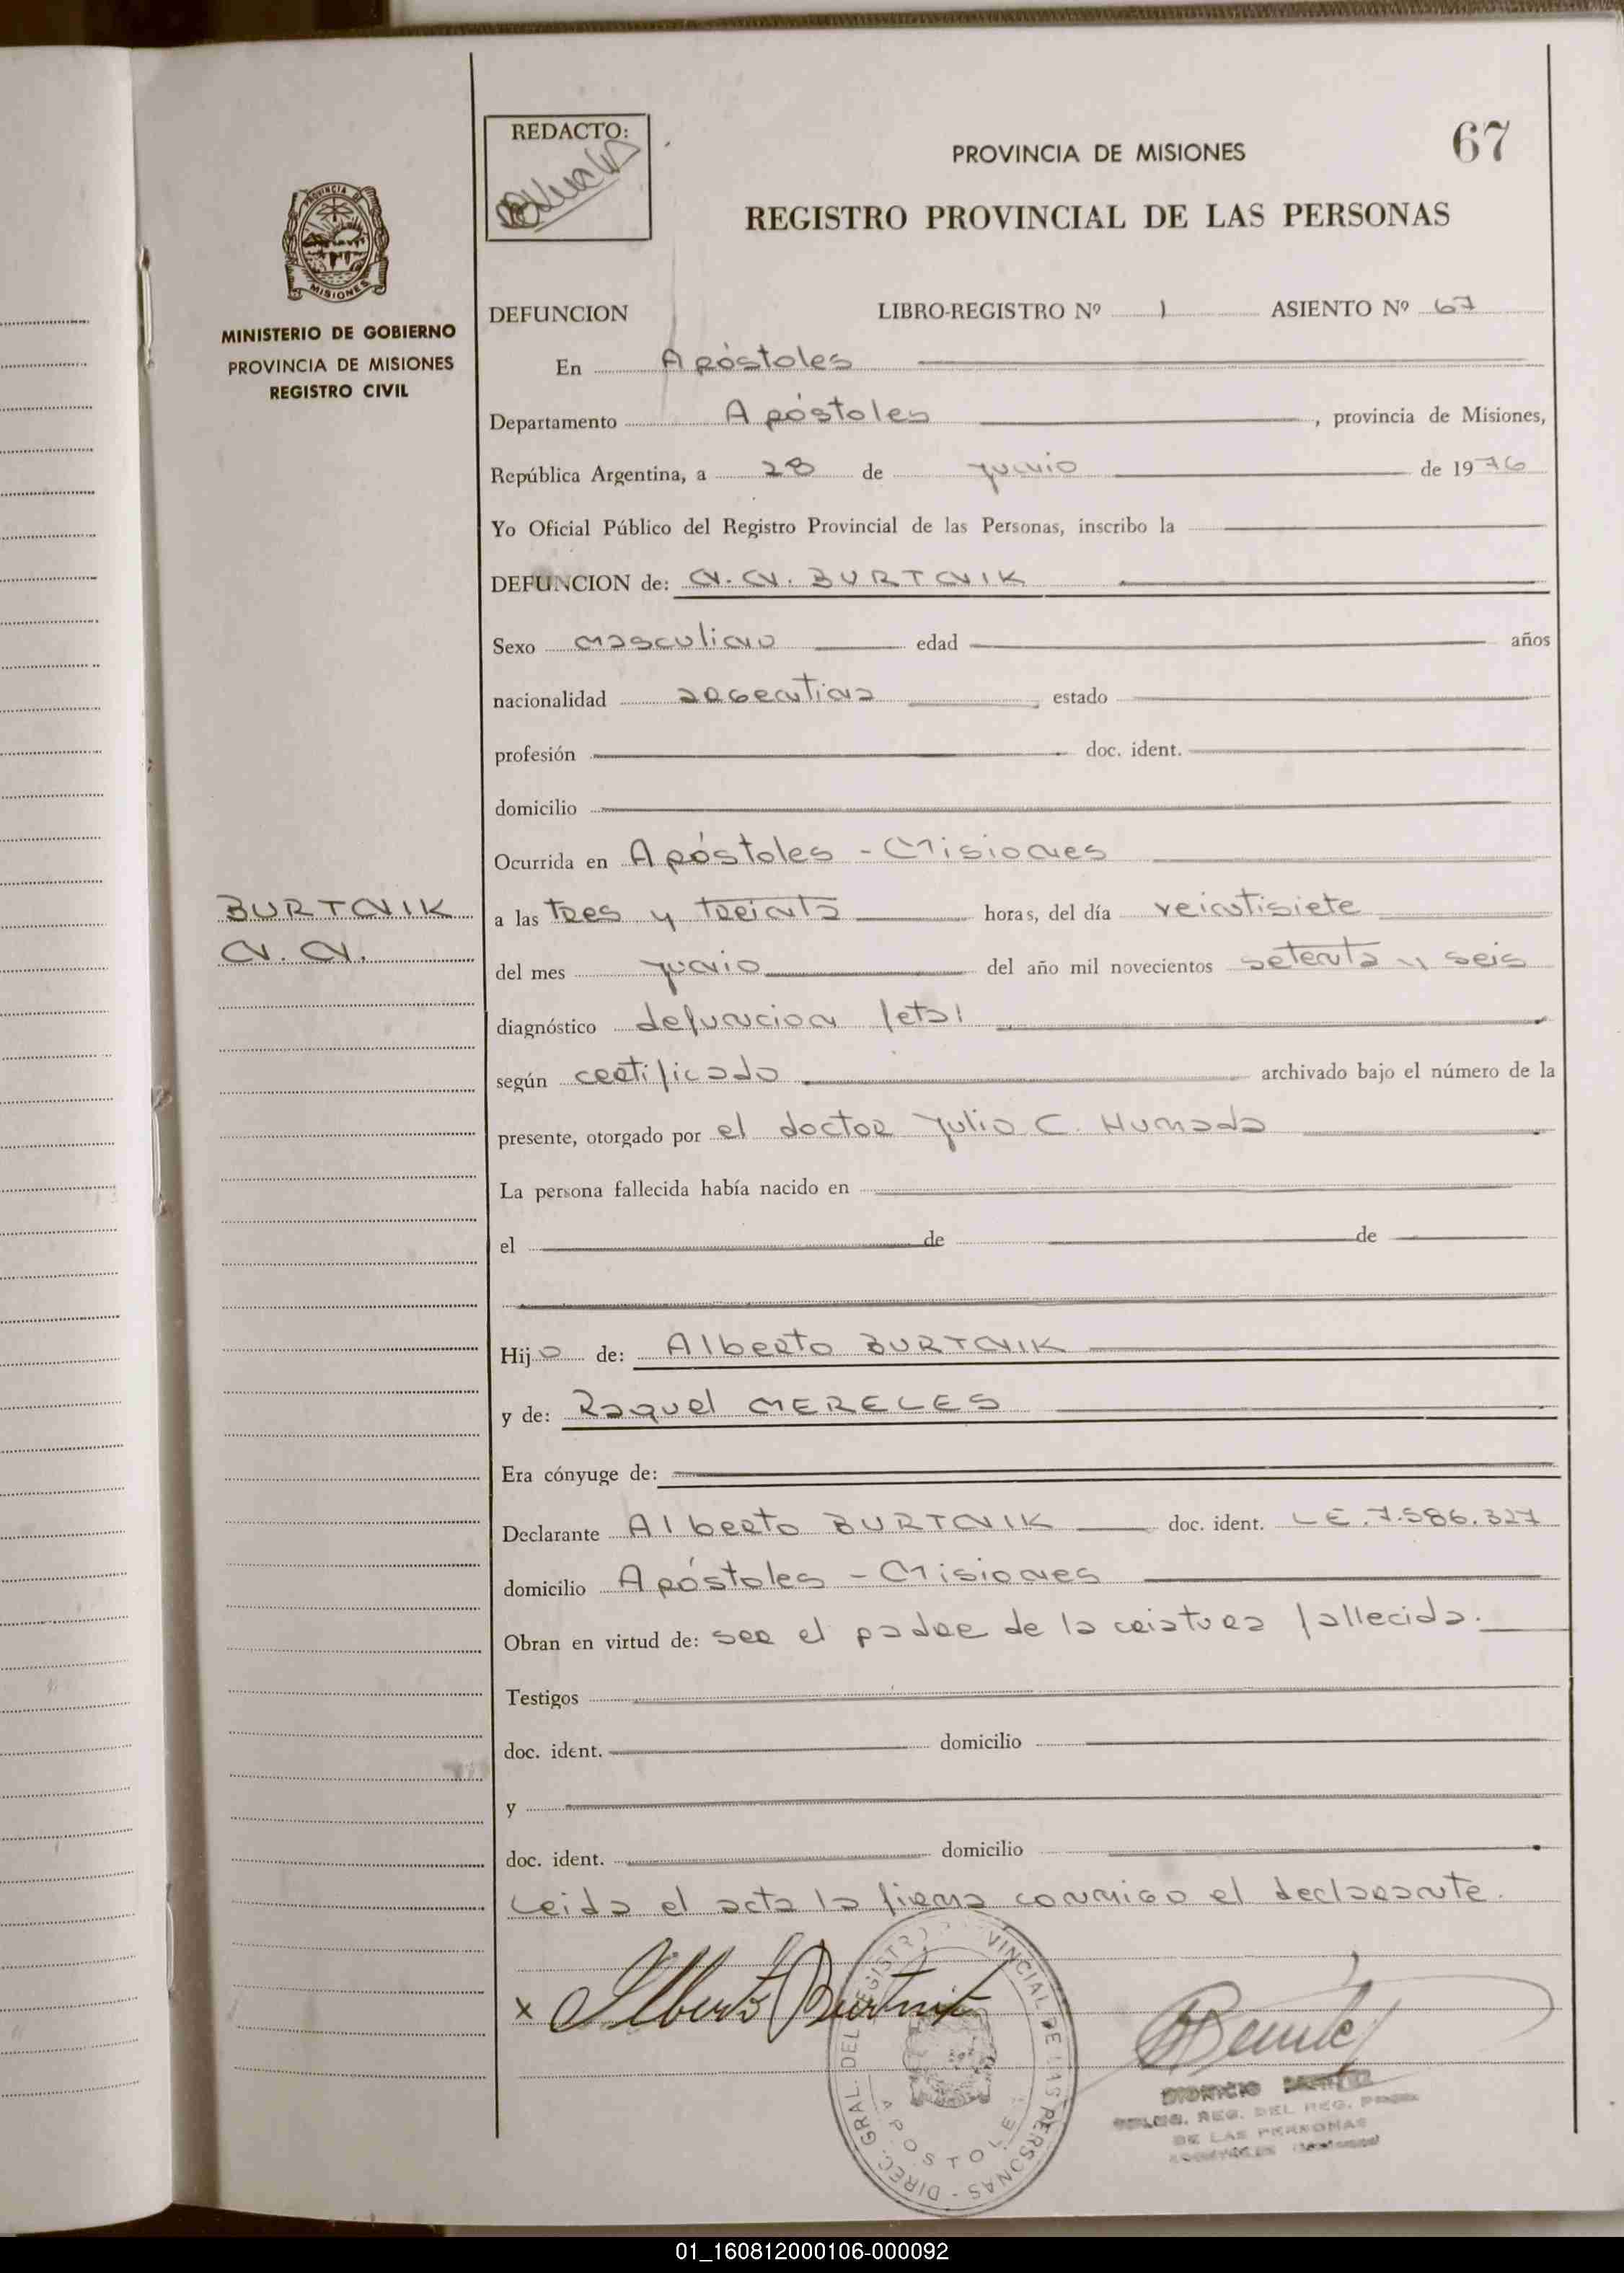 REDACTO:
67
PROVINCIA DE MISIONES
REGISTRO PROVINCIAL DE LAS PERSONAS
PROVINCIA DE
MISIONES
MINISTERIO DE GOBIERNO
PROVINCIA DE MISIONES
REGISTRO CIVIL
DEFUNCION LIBRO-REGISTRO Nº 1 ASIENTO Nº 67
En Apóstoles
Departamento Apóstoles, provincia de Misiones,
República Argentina, a 28 de junio de 1976
Yo Oficial Público del Registro Provincial de las Personas, inscribo la
DEFUNCION de: N.N. BURTNIK
Sexo masculino edad años
nacionalidad argentina estado
profesión doc. ident.
domicilio
Ocurrida en Apóstoles - Misiones
BURTNIK
N.N.
a las tres y treinta horas, del día veintisiete
del mes junio del año mil novecientos setenta y seis
diagnóstico defuncion fetal
según certificado archivado bajo el número de la
presente, otorgado por el doctor Julio C. Humada
La persona fallecida había nacido en
el de de
Hijo de: Alberto BURTNIK
y de: Raquel MERELES
Era cónyuge de:
Declarante Alberto BURTNIK doc. ident. LE.7.586.327
domicilio Apóstoles - Misiones
Obran en virtud de: ser el padre de la criatura fallecida.
Testigos
doc. ident. domicilio
y
doc. ident. domicilio
Leida el acta la firma conmigo el declarante.
x Alberto Burtnik
DIREC. GRAL. DEL REGISTRO VINCIAL DE LAS PERSONAS
APOSTOLES
REG. DEL REG.
DE LAS PERSONAS
01_160812000106-000092